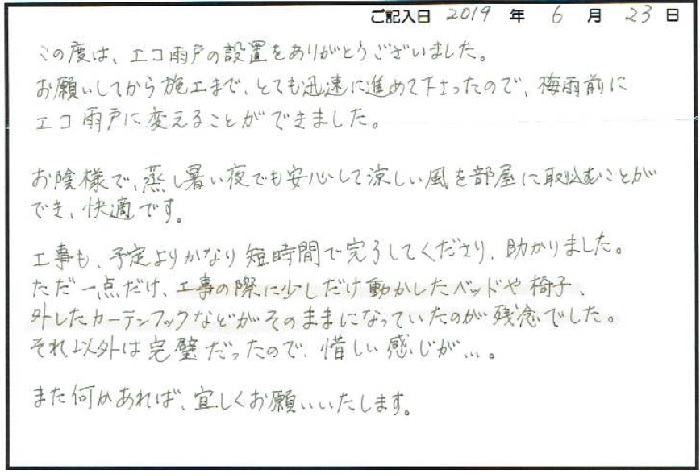 ご記入日 2019 年 6 月 23 日
この度は、エコ雨戸の設置をありがとうございました。
お願いしてから施工まで、とても迅速に進めて下さったので、梅雨前に
エコ雨戸に変えることができました。
お陰様で、蒸し暑い夜でも安心して涼しい風を部屋に取込むことが
でき、快適です。
工事も、予定よりかなり短時間で完了してくださり、助かりました。
ただ一点だけ、工事の際に少しだけ動かしたベッドや椅子、
外したカーテンフックなどがそのままになっていたのが残念でした。
それ以外は完璧だったので、惜しい感じが…。
また何かあれば、宜しくお願いいたします。